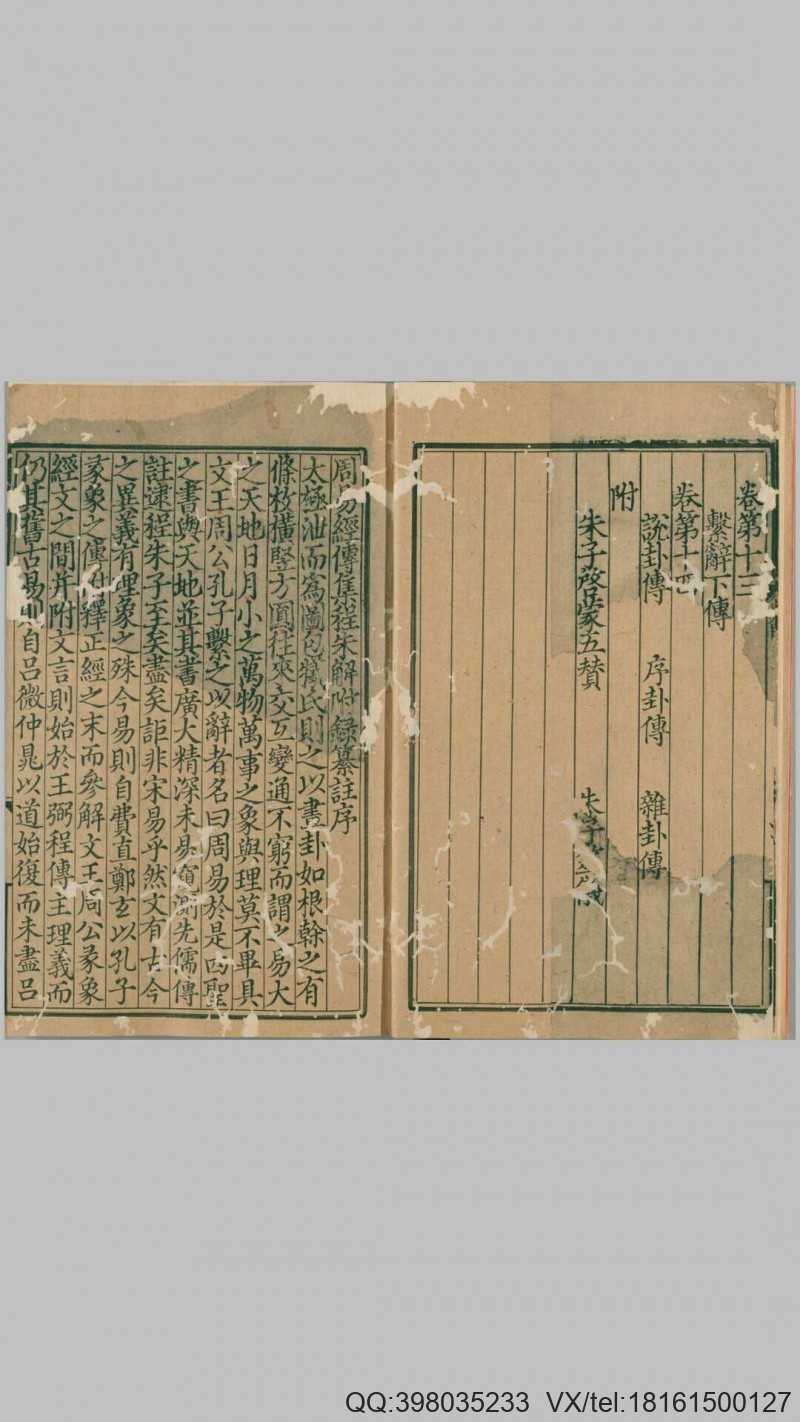 卷第十三
繫辭下傳
卷第十四
說卦傳 序卦傳 雜卦傳
附
朱子啓蒙五賛 朱子
周易經傳集程朱解附録纂註序
太極泄而爲圖包犧氏則之以畫卦如根榦之有
條枚橫竪方圓往來交互變通不窮而謂之易大
之天地日月小之萬物萬事之象與理莫不畢具
文王周公孔子繫之以辭者名曰周易於是四聖
之書與天地並其書廣大精深未易窺測先儒傳
註逮程朱子至矣盡矣詎非宋易乎然文有古今
之異義有理象之殊今易則自費直鄭玄以孔子
彖象之傳附釋正經之末而參解文王周公彖象
經文之間并附文言則始於王弼程傳主理義而
仍其舊古易則自呂微仲晁以道始復而未盡呂
QQ:398035233 VX/tel:18161500127